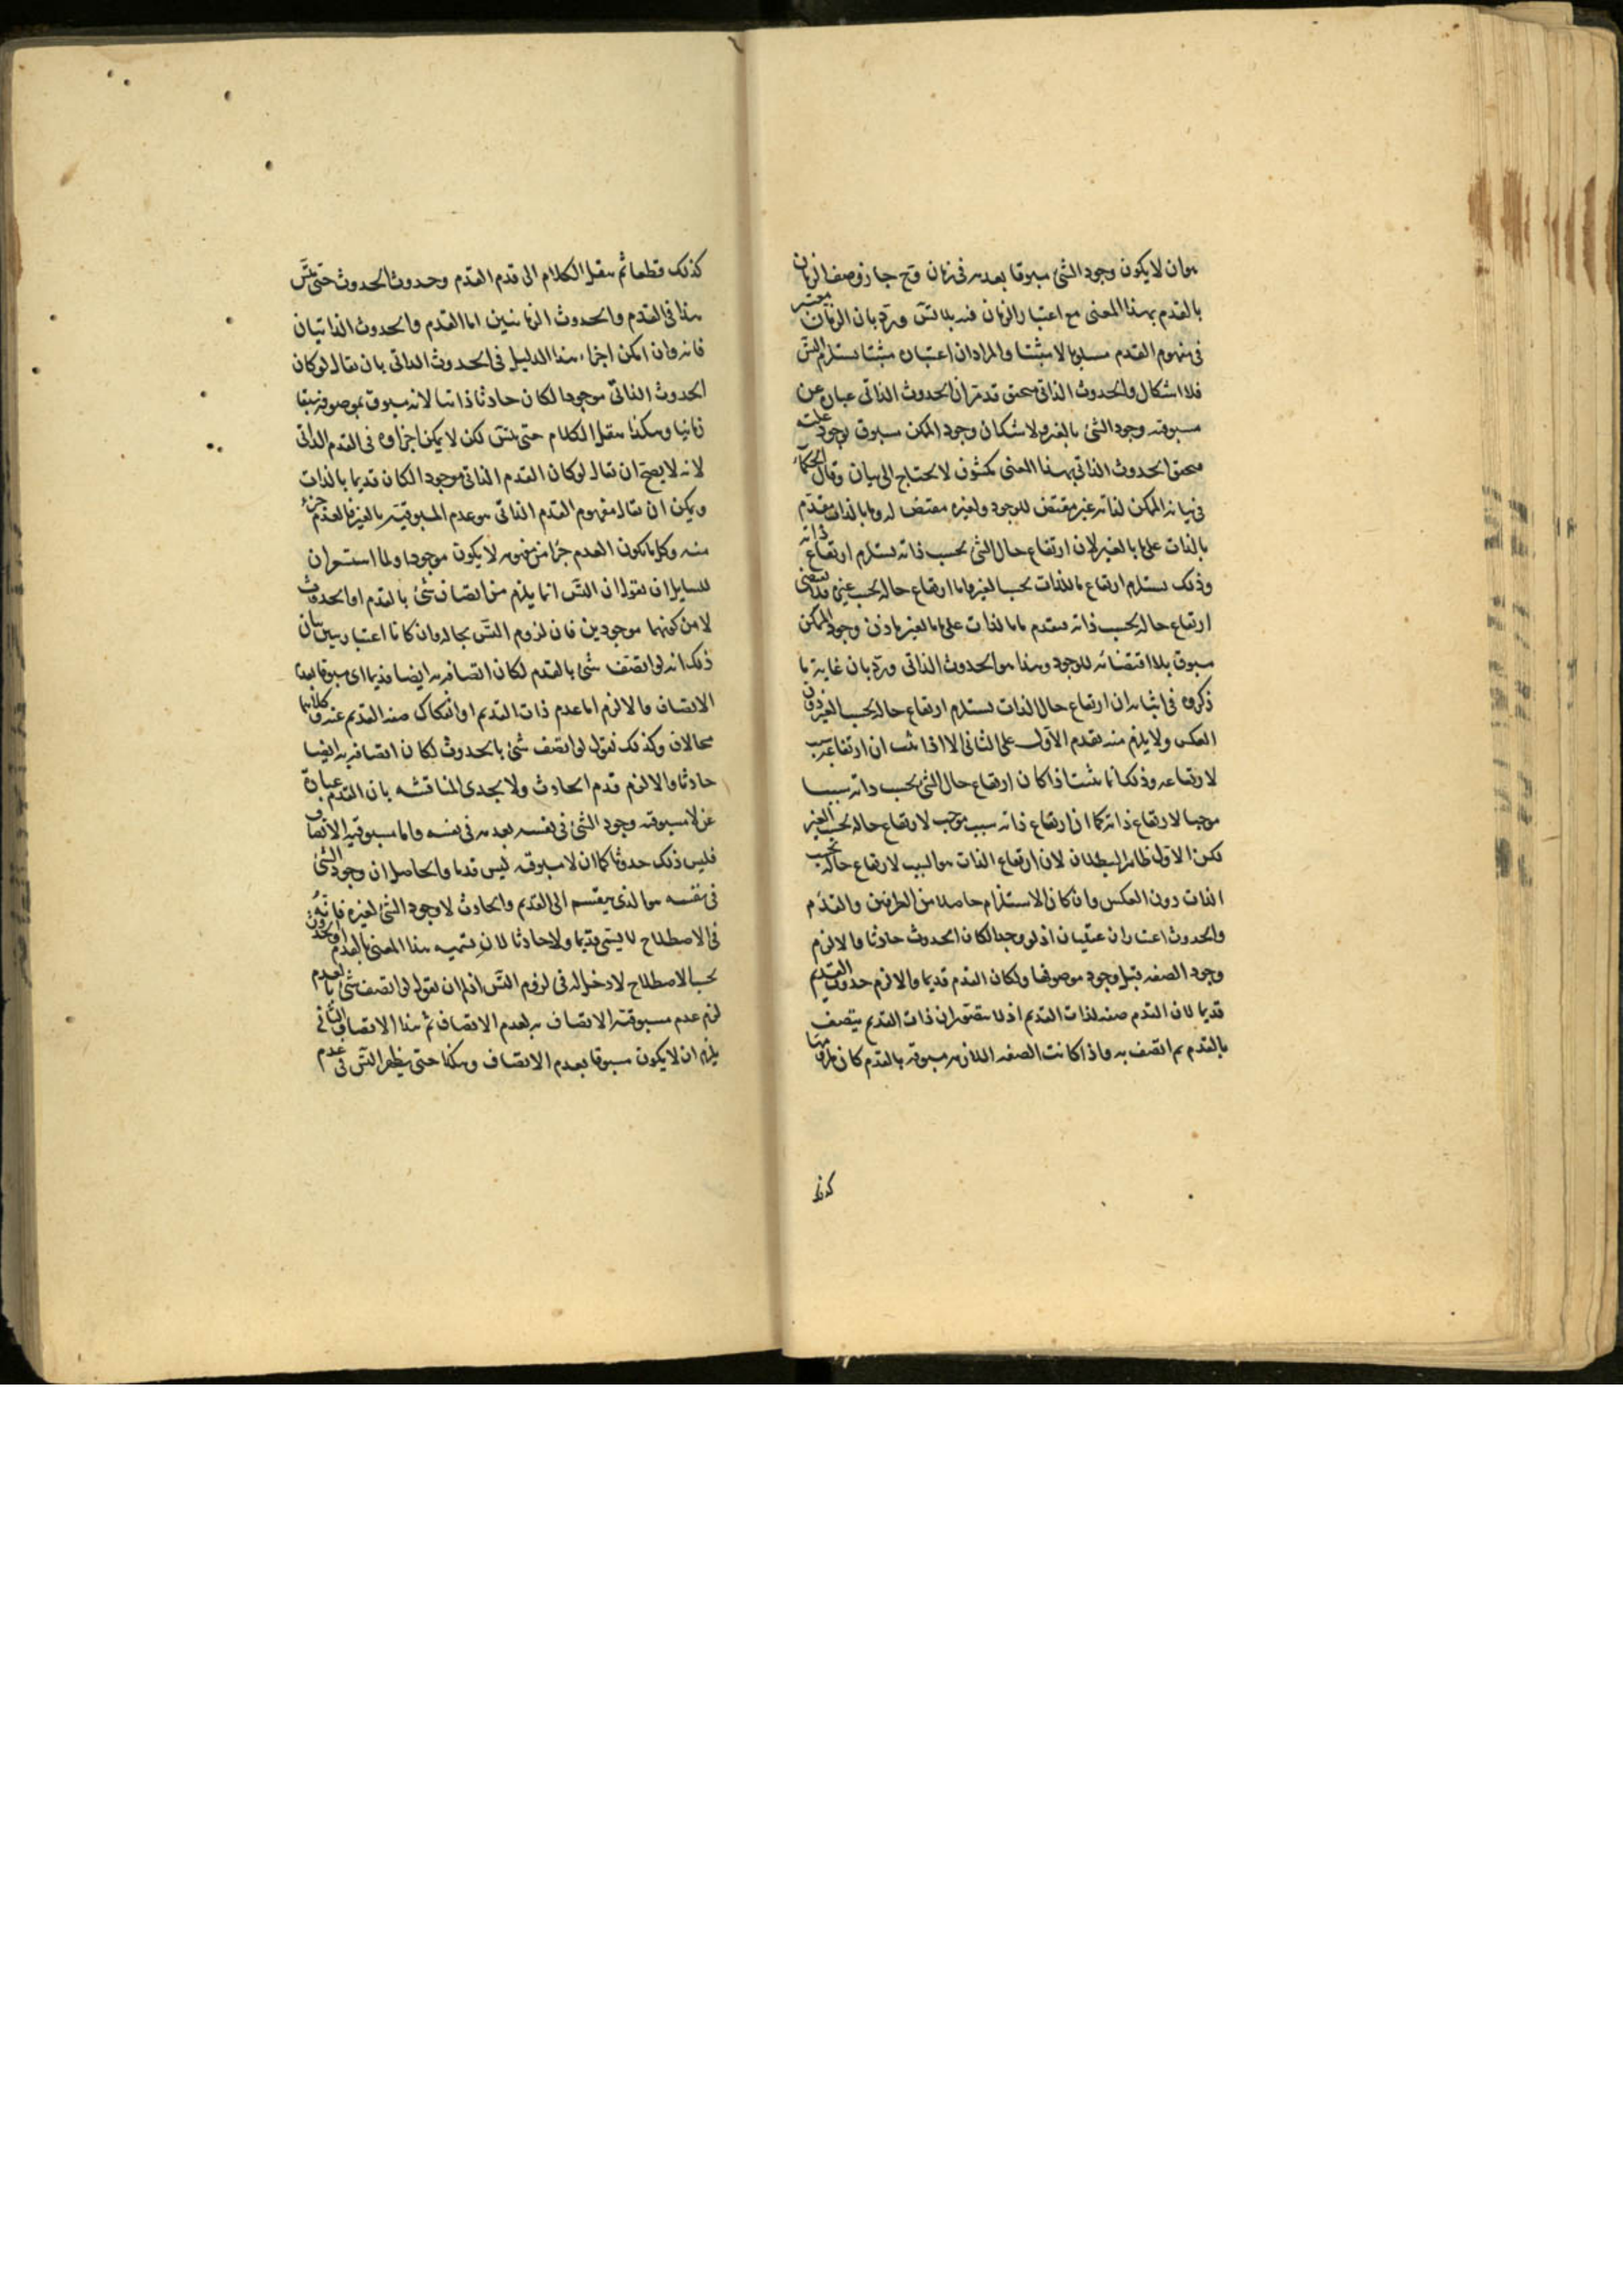 هو ان لا يكون وجود الشئ مسبوقا بعدمه فى زمان وح جاز وصف الزمان
بالقدم بهذا المعنى مع اعتبار الزمان فيه بلا تس ورد بان الزمان معتبر
فى مفهوم القدم مسلوبا لا مثبتا والمراد ان اعتباره مثبتا يستلزم التس
فلا اشكال والحدوث الذاتى متحقق قد مر ان الحدوث الذاتى عبارة عن
مسبوقية وجود الشئ بالغير ولا شك ان وجود الممكن مسبوق بوجود علته
فتحقق الحدوث الذاتى بهذا المعنى مكشوف لا يحتاج الى بيان وقال الحكماء
فى بيانه الممكن لذاته غير مقتض للوجود ولغيره مقتض له وما بالذات مقدم
بالذات على ما بالغير لان ارتفاع حال الشئ بحسب ذاته يستلزم ارتفاع ذاته
وذلك يستلزم ارتفاع ما للذات بحسب الغير واما ارتفاع حاله بحسب غيره فلا يقتضى
ارتفاع حاله بحسب ذاته فتقدم ما بالذات على ما بالغير فاذن وجود الممكن
مسبوق بلا اقتضائه للوجود وهذا هو الحدوث الذاتى ورد بان غاية ما
ذكروه فى اثباته ان ارتفاع حال الذات يستلزم ارتفاع حاله بحسب الغير دون
العكس ولا يلزم منه تقدم الاول على الثانى الا اذا ثبت ان ارتفاعه سبب
لارتفاعه وذلك انما يثبت اذا كان ارتفاع حال الشئ بحسب ذاته سببا
موجبا لارتفاع ذاته كما ان ارتفاع ذاته سبب موجب لارتفاع حاله بحسب الغير
لكن الاول ظاهر البطلان لان ارتفاع الذات هو السبب لارتفاع حاله بحسب
الذات دون العكس وان كان الاستلزام حاصلا من الطرفين والقدم
والحدوث اعتباران عقليان اذ لو وجدا لكان الحدوث حادثا والا لزم
وجود الصفة قبل وجود موصوفها ولكان القدم قديما والا لزم حدوث القديم
قديما لان القدم صفة لذات القديم اذ لا يتصور ان ذات القديم يتصف
بالقدم ثم اتصف به واذا كانت الصفة اللازمة مسبوقة بالعدم كان ملزومها
كذلك
كذلك قطعا ثم ننقل الكلام الى قدم القدم وحدوث الحدوث حتى يتس
هذا فى القدم والحدوث الزمانيين اما القدم والحدوث الذاتيان
فانه وان امكن اجراء هذا الدليل فى الحدوث الذاتى بان يقال لو كان
الحدوث الذاتى موجودا لكان حادثا ذاتيا لانه مسبوق بموصوفه سبقا
ذاتيا وهكذا ننقل الكلام حتى يتس لكن لا يمكن اجراؤه فى القدم الذاتى
لانه لا يصح ان يقال لو كان القدم الذاتى موجودا لكان قديما بالذات
ويمكن ان يقال مفهوم القدم الذاتى هو عدم المسبوقية بالغير فالعدم جزء
منه وكل ما يكون العدم جزءا من مفهومه لا يكون موجودا ولما استشعر ان
للسايل ان يقول ان التس انما يلزم من اتصاف شئ بالقدم او الحدوث
لا من كونهما موجودين فان لزوم التس بحاله وان كانا اعتباريين بيان
ذلك انه لو اتصف شئ بالقدم لكان اتصافه به ايضا قديما اى مسبوقا بعدم
الاتصاف والا لزم اما عدم ذات القديم او انفكاك صفة القديم عنه وكلاهما
محالان وكذلك نقول لو اتصف شئ بالحدوث لكان اتصافه به ايضا
حادثا والا لزم قدم الحادث ولا يجدى المناقشة بان القدم عبارة
عن لا مسبوقية وجود الشئ فى نفسه بعدمه فى نفسه واما مسبوقية الاتصاف
فليس ذلك حدوثا كما ان لا مسبوقيه ليس قدما والحاصل ان وجود الشئ
فى نفسه هو الذى ينقسم الى القديم والحادث لا وجود الشئ لغيره فانه
فى الاصطلاح لا يسمى قديما ولا حادثا لان تسمية هذا المعنى بالقدم او الحدوث
بحسب الاصطلاح لا دخل له فى لزوم التس اذ لنا ان نقول لو اتصف شئ بالقدم
لزم عدم مسبوقية الاتصاف به بعدم الاتصاف ثم هذا الاتصاف الثانى
يلزم ان لا يكون مسبوقا بعدم الاتصاف وهكذا حتى يظهر التس فى عدم